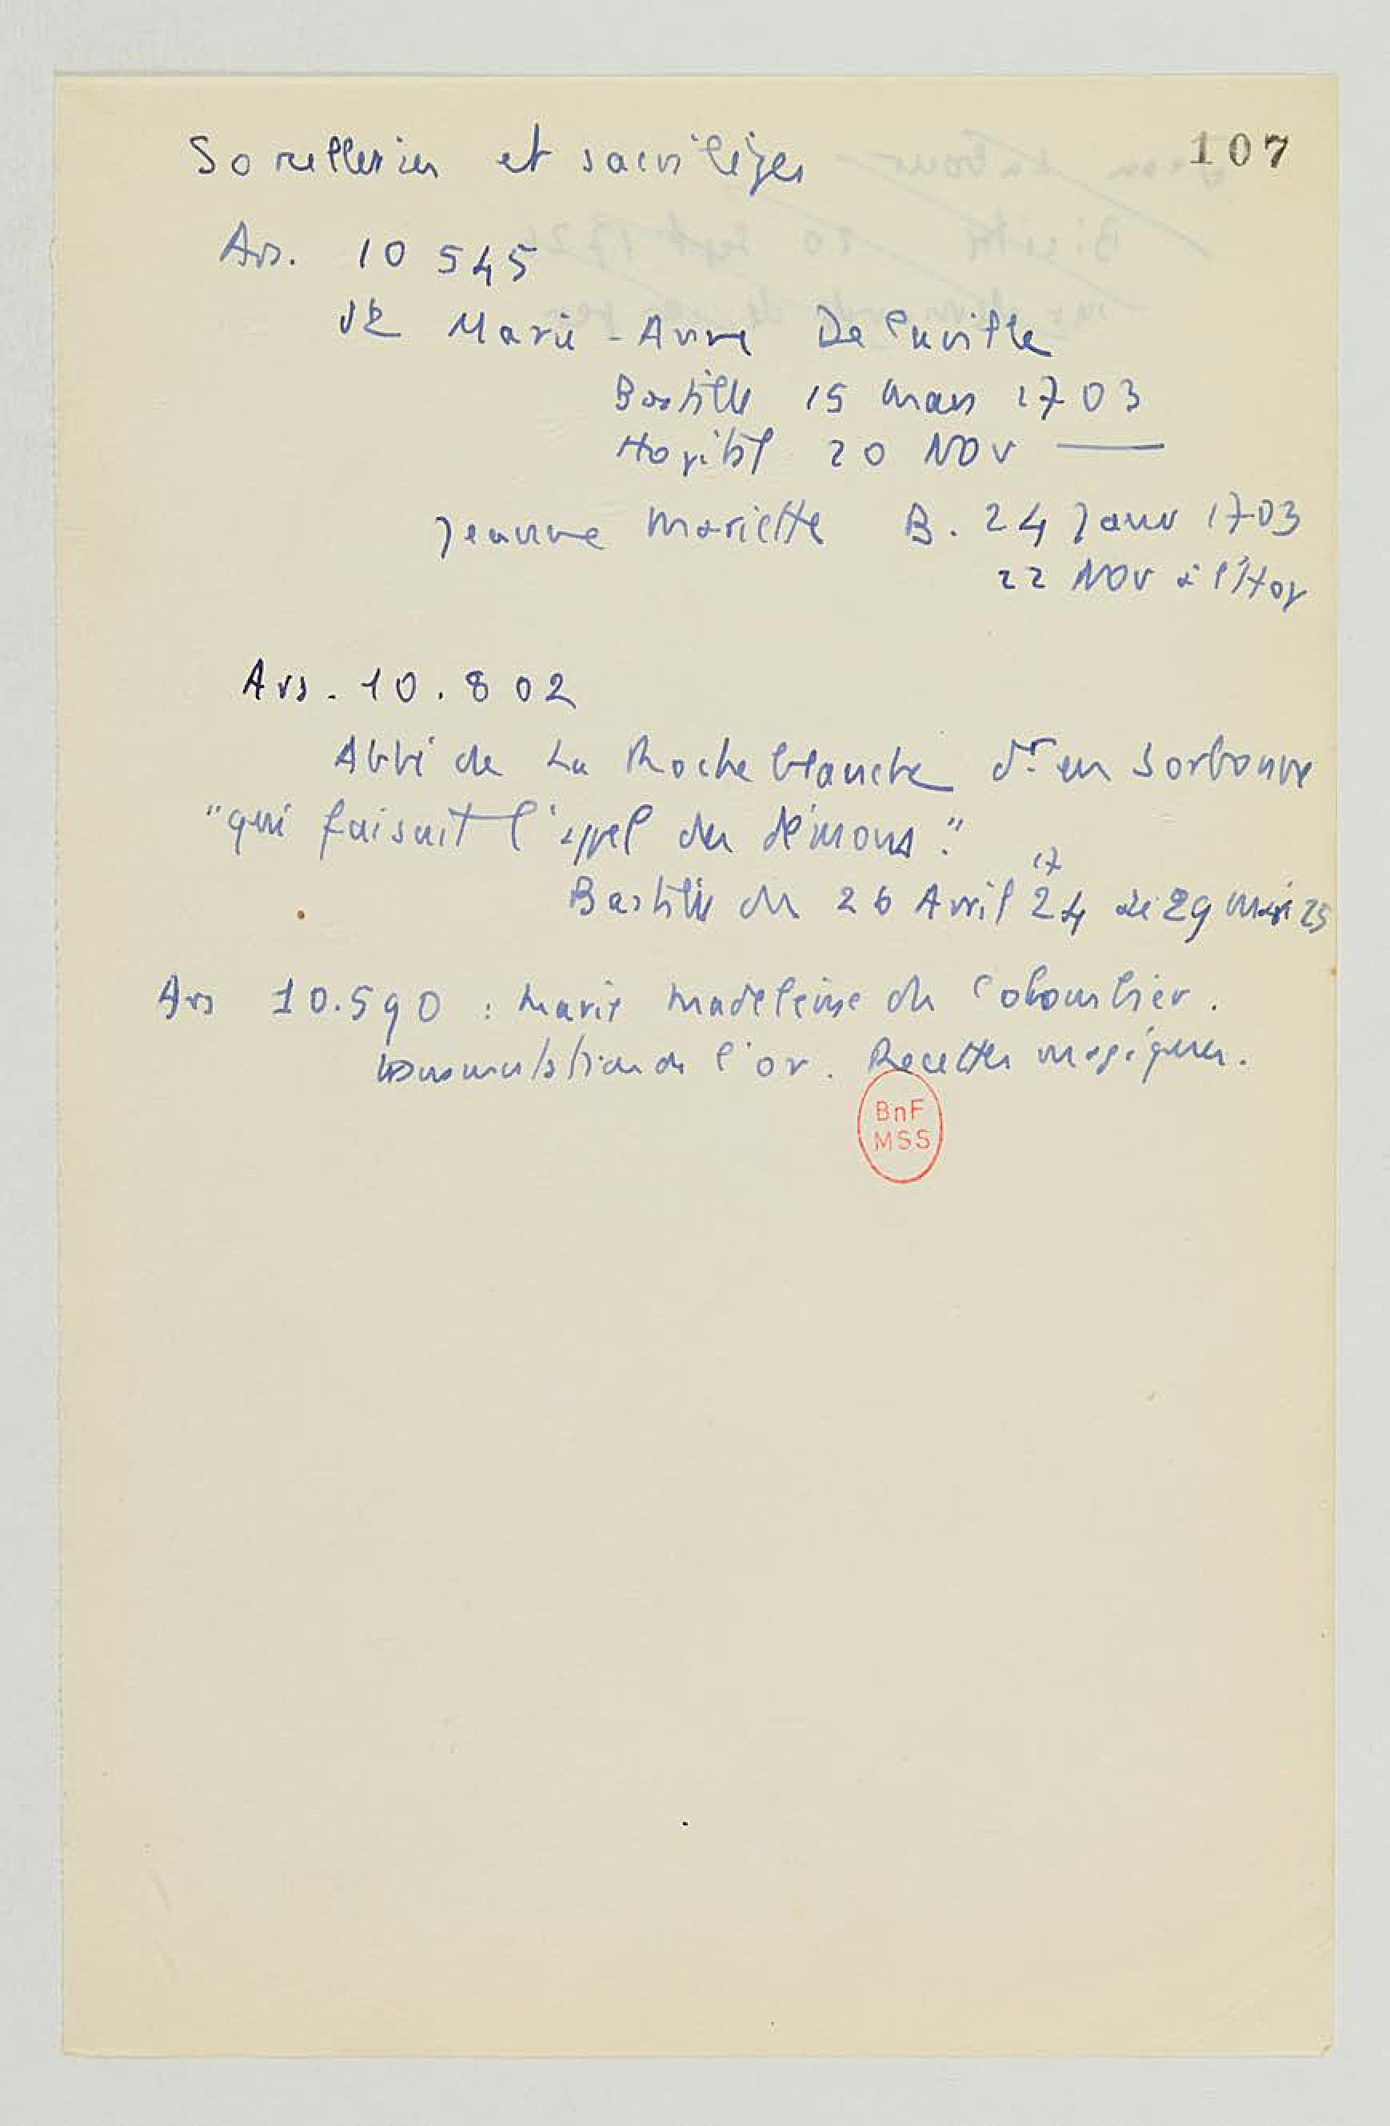 107
Sorcelleries et sacrilèges
Ars. 10 545
Marie-Anne De
Bastille 15 mars 1703
Hopital 20 NOV ——
Jeanne Mariette B. 24 Janv 1703
22 NOV à l'Hop
Ars. 10.802
Abbé de La Rocheblanche dr en Sorbonne
"qui faisait l'appel des démons."
17
Bastille du 26 Avril 24 29 25
Ars 10.590 : Marie Madeleine du Colombier.
de l'or. Recettes magiques.
BnF
MSS